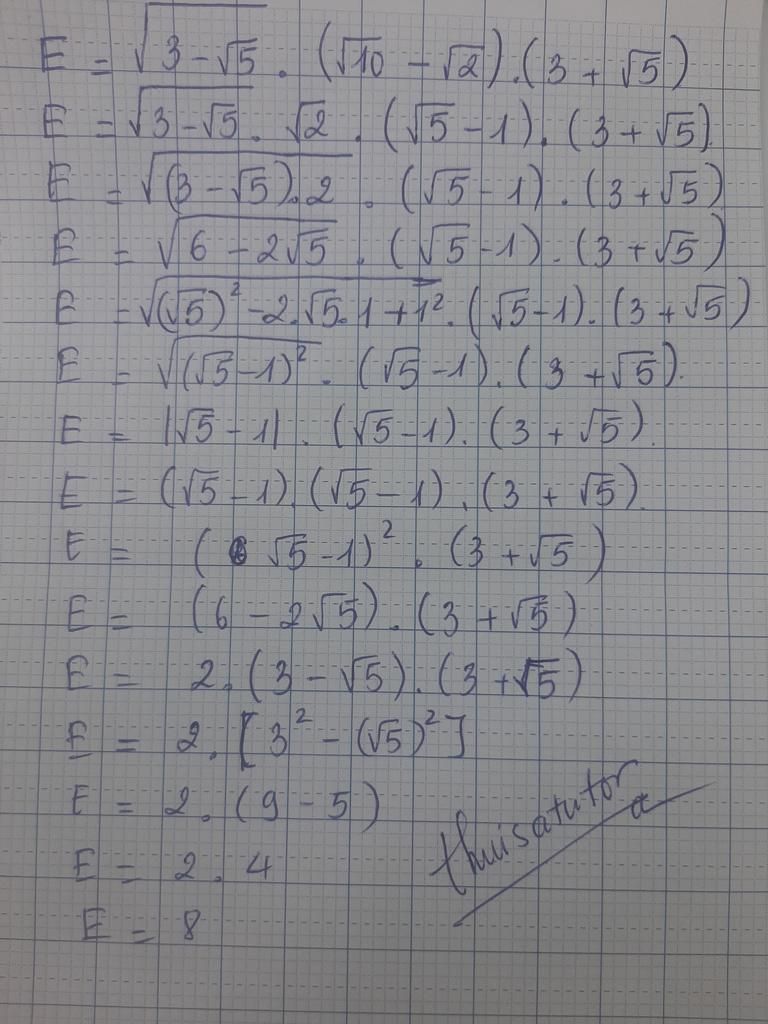 E = √(3 - √5) . (√10 - √2) . (3 + √5)
E = √(3 - √5) . √2 . (√5 - 1) . (3 + √5).
E = √((3 - √5).2) . (√5 - 1) . (3 + √5)
E = √(6 - 2√5) . (√5 - 1) . (3 + √5)
E = √((√5)² - 2.√5.1 + 1²) . (√5 - 1) . (3 + √5)
E = √((√5 - 1)²) . (√5 - 1) . (3 + √5).
E = |√5 - 1| . (√5 - 1) . (3 + √5).
E = (√5 - 1) . (√5 - 1) . (3 + √5).
E = (√5 - 1)² . (3 + √5)
E = (6 - 2√5) . (3 + √5)
E = 2 . (3 - √5) . (3 + √5)
E = 2 . [3² - (√5)²]
E = 2 . (9 - 5)
E = 2 . 4
E = 8
thuisatutor